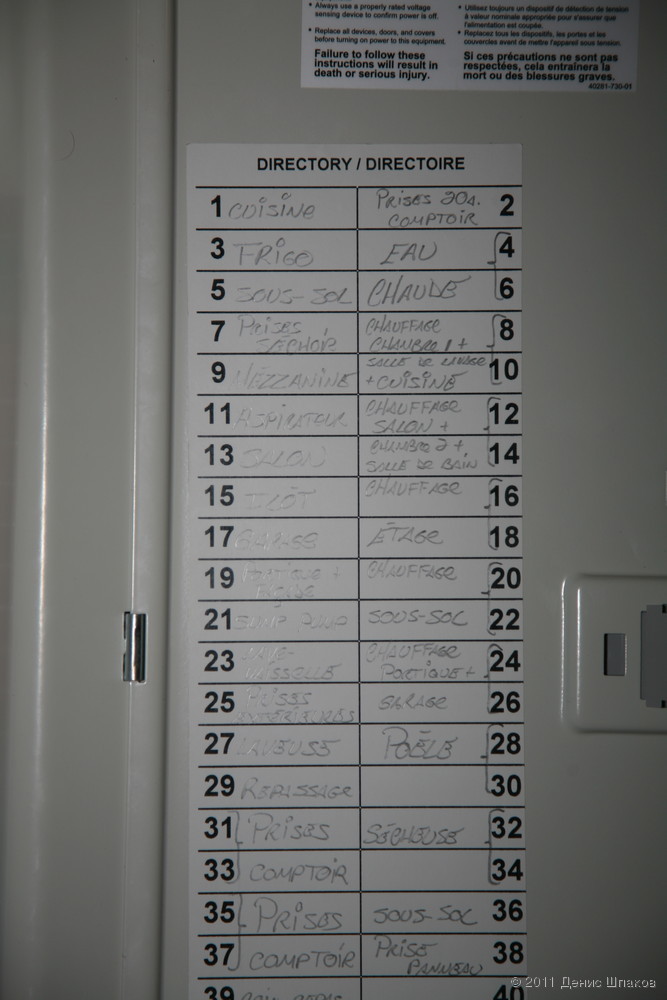 • Always use a properly rated voltage
sensing device to confirm power is off.
• Replace all devices, doors, and covers
before turning on power to this equipment.
Failure to follow these
instructions will result in
death or serious injury.
• Utilisez toujours un dispositif de détection de tension
à valeur nominale appropriée pour s'assurer que
l'alimentation est coupée.
• Replacez tous les dispositifs, les portes et les
couvercles avant de mettre l'appareil sous tension.
Si ces précautions ne sont pas
respectées, cela entraînera la
mort ou des blessures graves.
40281-730-01
DIRECTORY / DIRECTOIRE
1 CUISINE
PRISES 20A.
COMPTOIR 2
3 FRIGO
EAU 4
5 SOUS-SOL
CHAUDE 6
7 PRISES
SÉCHOIR
CHAUFFAGE
CHAMBRE 1 + 8
9 MEZZANINE
SALLE DE LAVAGE
+ CUISINE 10
11 ASPIRATEUR
CHAUFFAGE
SALON + 12
13 SALON
CHAMBRE 2 +
SALLE DE BAIN 14
15 ILÔT
CHAUFFAGE 16
17 GARAGE
ÉTAGE 18
19 PORTIQUE +
FAÇADE
CHAUFFAGE 20
21 SUMP PUMP
SOUS-SOL 22
23 LAVE-
VAISSELLE
CHAUFFAGE
PORTIQUE + 24
25 PRISES
EXTÉRIEURES
GARAGE 26
27 LAVEUSE
POÊLE 28
29 REPASSAGE
30
31 PRISES
SÉCHEUSE 32
33 COMPTOIR
34
35 PRISES
SOUS-SOL 36
37 COMPTOIR
PRISE
PANNEAU 38
39
40
© 2011 Денис Шпаков